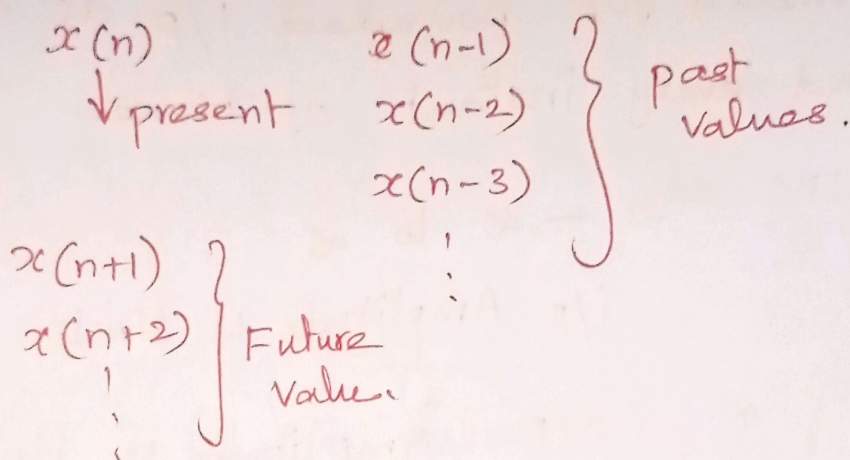 x(n)
↓ present
x(n-1)
x(n-2)
x(n-3)
⋮
} past
values.
x(n+1)
x(n+2)
⋮
} Future
value.